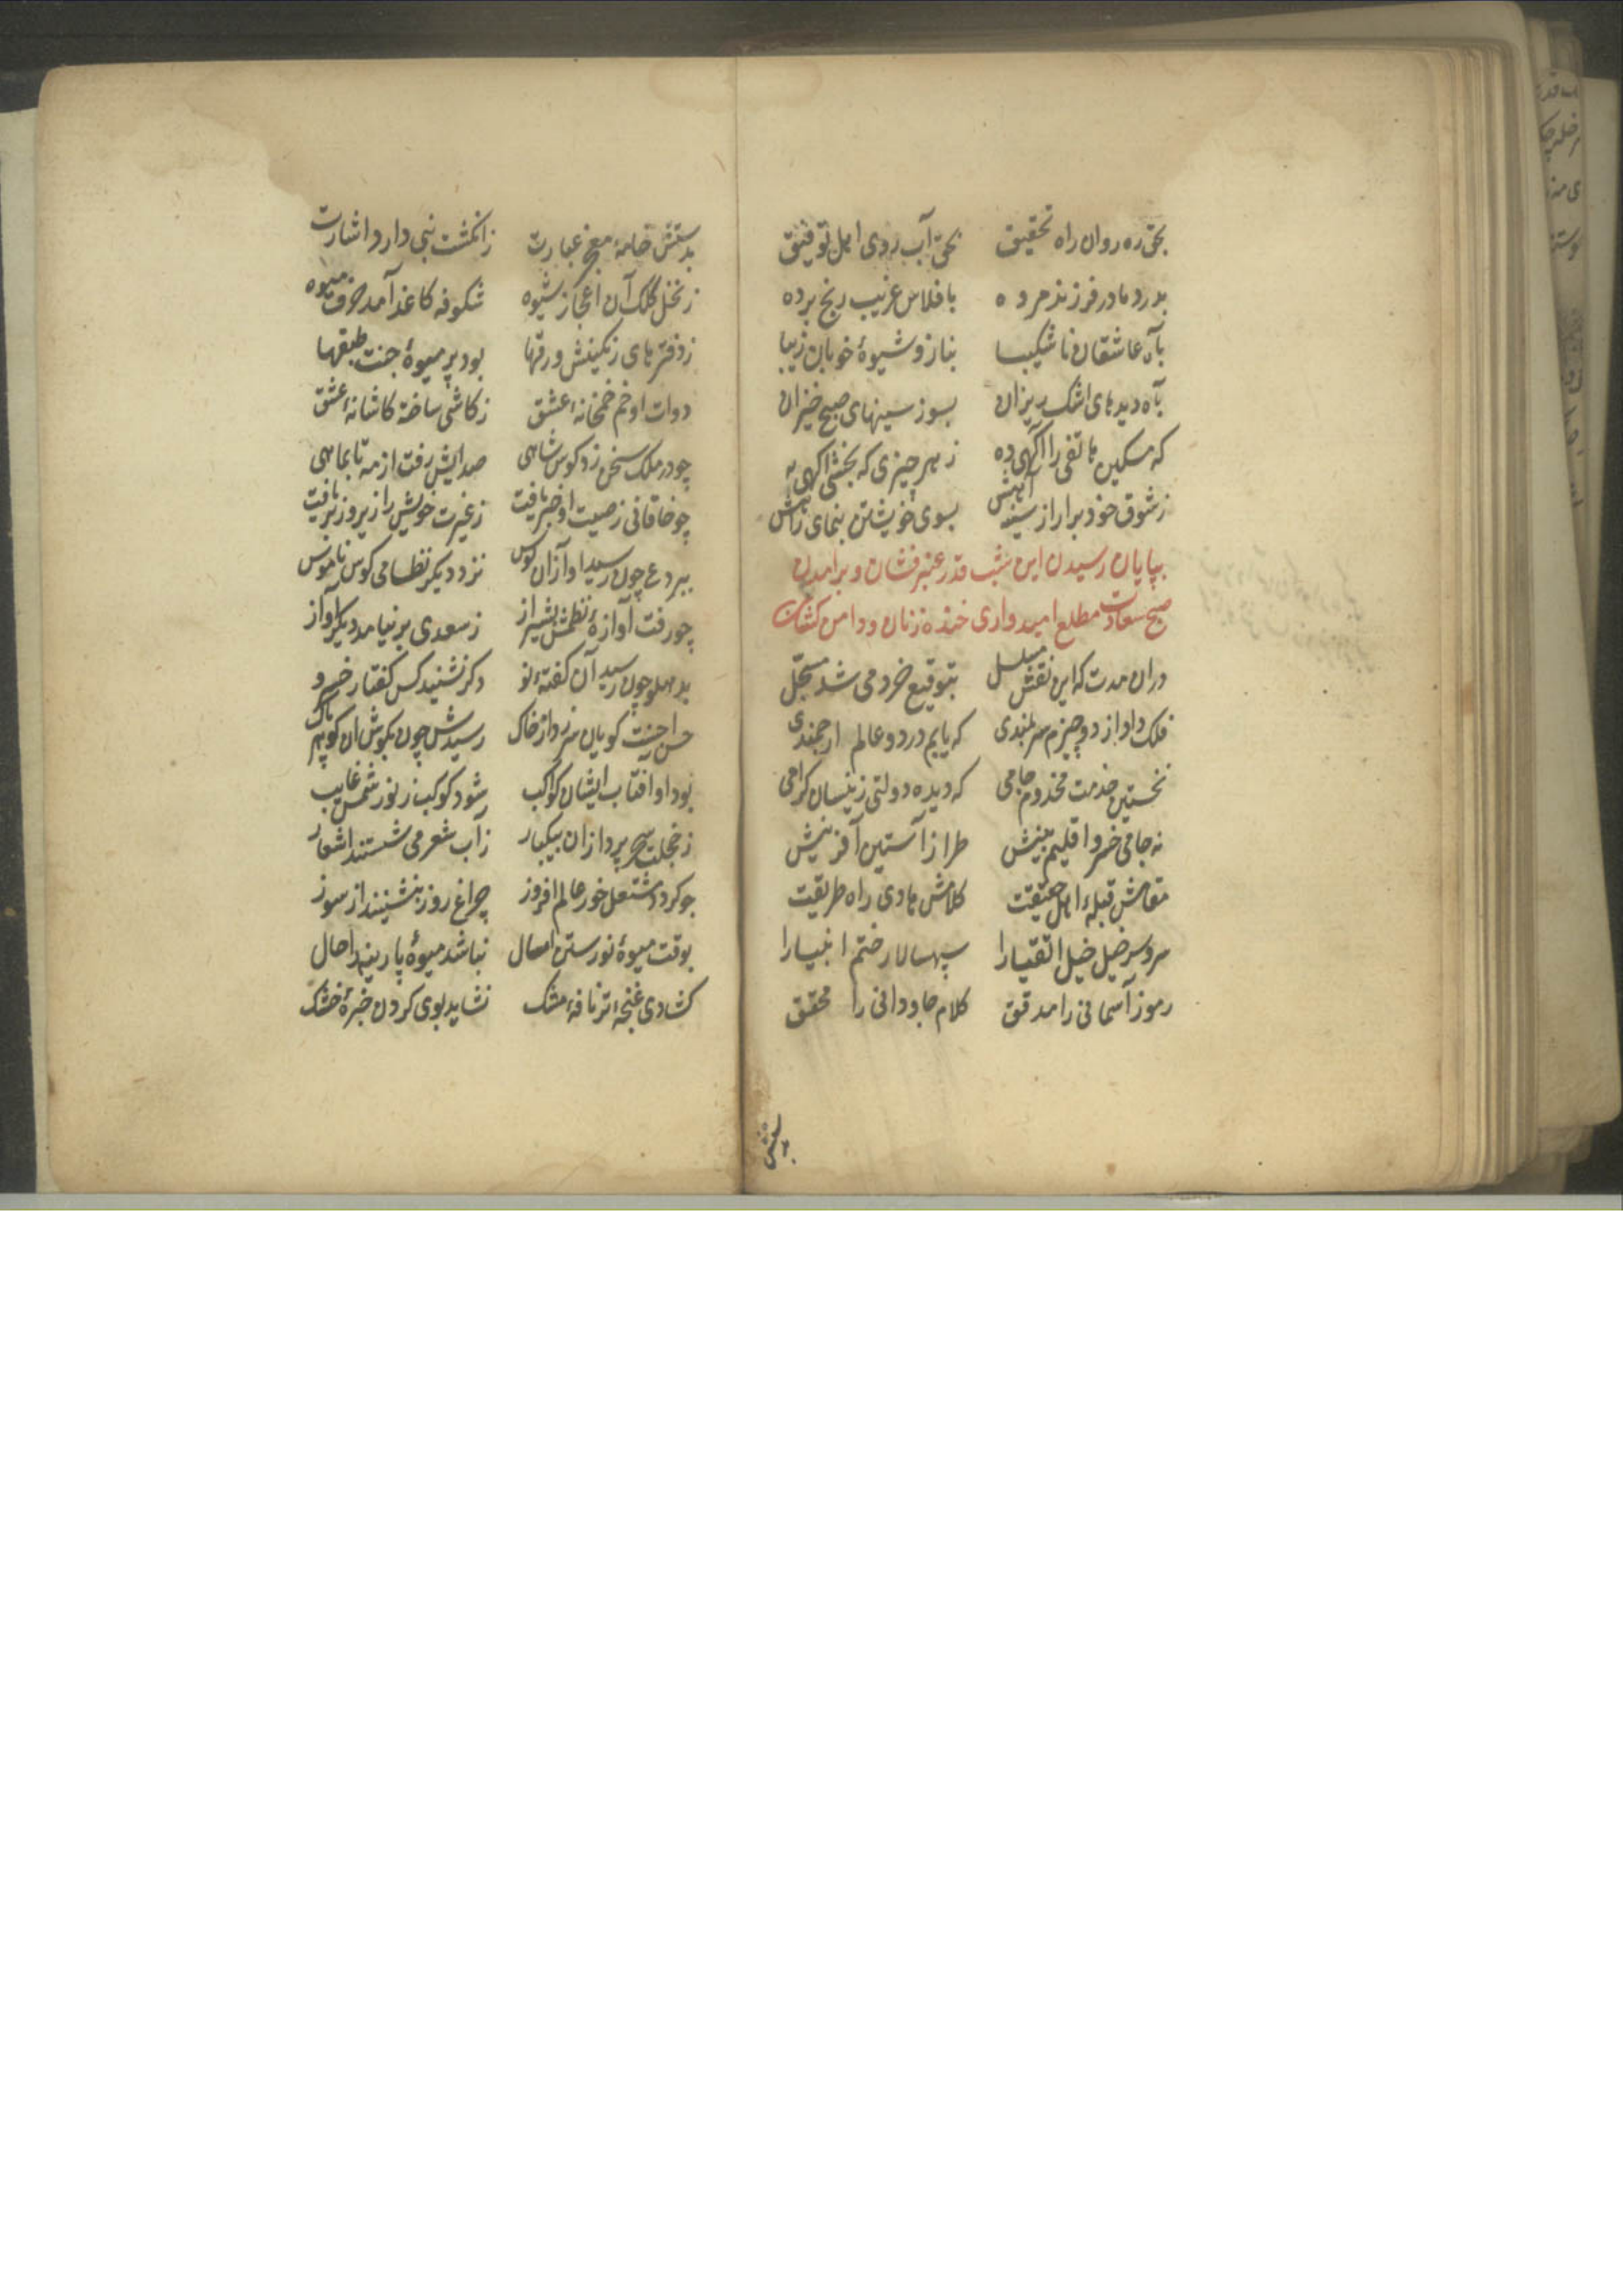 بحق ره روان راه تحقیق بحق آب روی اهل توفیق
بدرد مادر فرزند مرده بافلاس غریب رنج برده
بآه عاشقان ناشکیبا بناز و شیوهٔ خوبان زیبا
بآه دیدهای اشک ریزان بسوز سینهای صبح خیزان
که مسکین هاتفی را آگهی ده ز هر چیزی که بخشی آگهی به
ز شوق خود برار از سینه آهش بسوی خویشتن بنمای راهش
بپایان رسیدن این شب قدر عنبرفشان و برامدن
صبح سعادت مطلع امیدواری خنده زنان و دامن کشان
دران مدت که این نقش مسلسل بتوقیع خرد می شد مسجل
فلک داد از دو چیزم سربلندی که یابم در دو عالم ارجمندی
نخستین خدمت مخدوم جامی که دیده دولتی زینسان کرامی
نه جامی خسرو اقلیم بینش طراز آستین آفرینش
مقامش قبلهٔ اهل حقیقت کلامش هادی راه طریقت
سر و سرخیل خیل اتقیا را سپهسالار ختم انبیا را
رموز آسمانی را مدقق کلام جاودانی را محقق
بدستش
بدستش خامهٔ معجز عبارت ز انکشت نبی دارد اشارت
ز نخل کلک آن اعجاز شیوه شکوفه کاغذ آمد حرف میوه
ز دفترهای رنکینش ورقها بود پر میوهٔ جنت طبقها
دوات او خم خمخانهٔ عشق ز کاشی ساخته کاشانهٔ عشق
چو در ملک سخن زد کوس شاهی صدایش رفت از مه تا بماهی
چو خاقانی ز صیت او خبر یافت ز غیرت خویش را زیر و زبر یافت
ببردع چون رسید آواز آن کوس نزد دیکر نظامی کوس ناموس
چو رفت آوازهٔ نظمش بشیراز ز سعدی بر نیامد دیکر آواز
بدهلو چون رسید آن کفتهٔ نو دکر نشنید کس کفتار خسرو
حسن احسنت کویان سر زد از خاک رسیدش چون بکوش آن کوهر پاک
بود او آفتاب ایشان کواکب شود کوکب ز نور شمس غایب
ز خجلت سحر پردازان بیکبار ز آب شعر می شستند اشعار
چو کردد مشتعل خور عالم افروز چراغ روز بنشیند از سوز
بوقت میوهٔ نورستن امسال نباشد میوهٔ پارینه را حال
کشادی غنچهٔ تر نافهٔ مشک نشاید بوی کردن خبرهٔ خشک